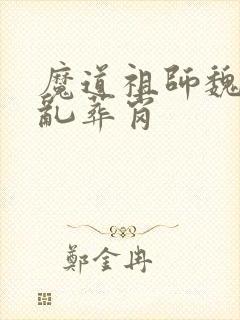 魔道祖師魏
亂葬崗
鄭金冉